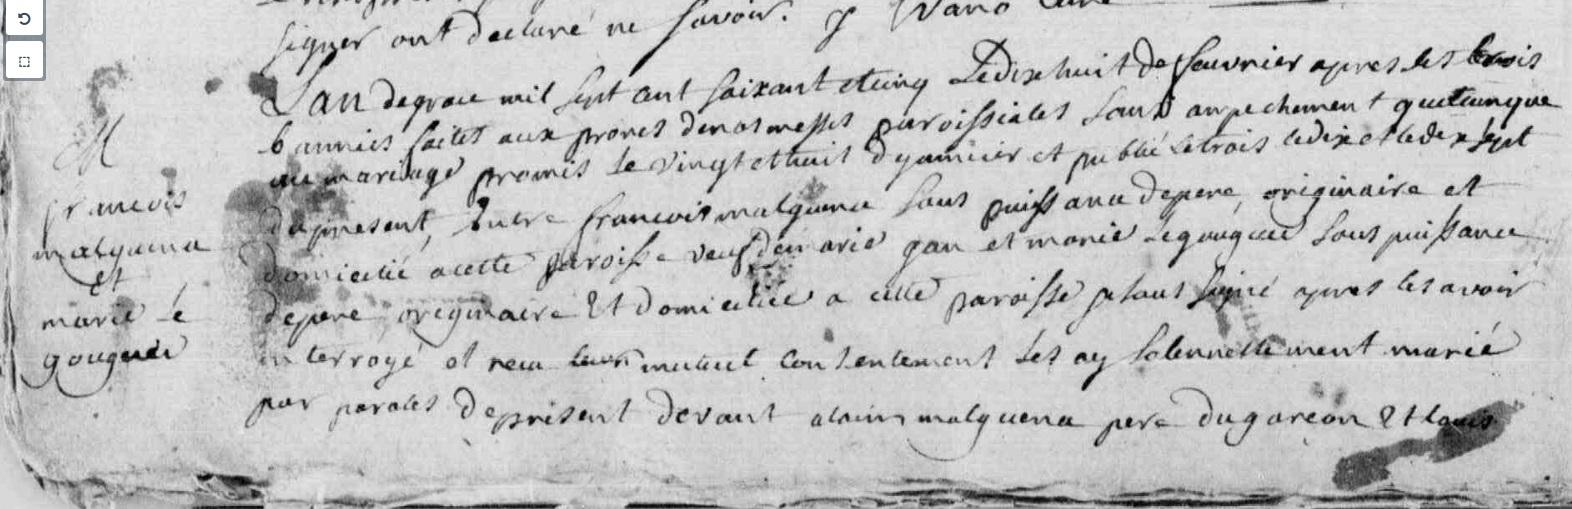 signer ont declaré ne savoir. y Vano Curé
Lan degrace mil sept cent soixant etcinq Ledixhuit de feuvrier apres les trois
bannies faites aux prones denosmesses paroissiales sans anpechement quelcunque
au mariage promis le vingt ethuit dyanvier et publié letrois ledix et ledix sept
dupresent, Entre francois malguena sous puissance depere, originaire et
domicilié acette paroisse veuf demarie gan et marie Legouguec sous puissance
depere originaire Et domiciliée a cette paroisse je sous signé apres les avoir
interrogé et recu leur mutuel consentement Les ay solennellement marié
par paroles depresent devant alain malguena pere dugarcon Et louis
M
francois
malguena
et
marie Le
gouguec